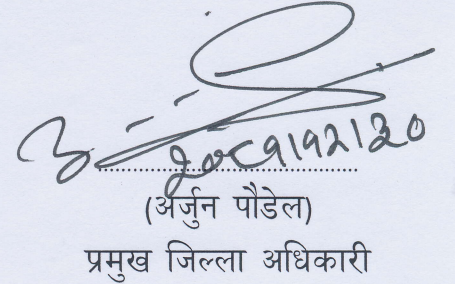 २०८१।१२।२०
(अर्जुन पौडेल)
प्रमुख जिल्ला अधिकारी